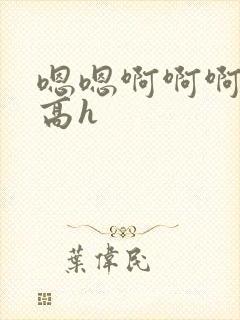 嗯嗯啊啊啊
高h
葉偉民